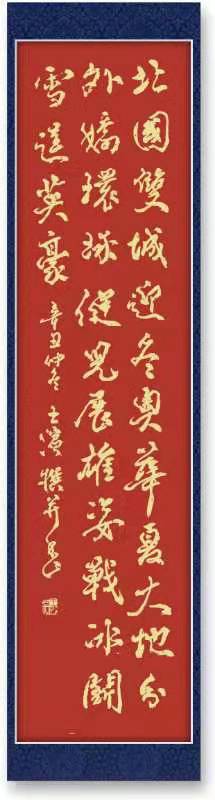 北國雙城迎冬奧華夏大地分
外嬌環球健兒展雄姿戰冰鬪
雪逞英豪 辛丑仲冬 撰并書